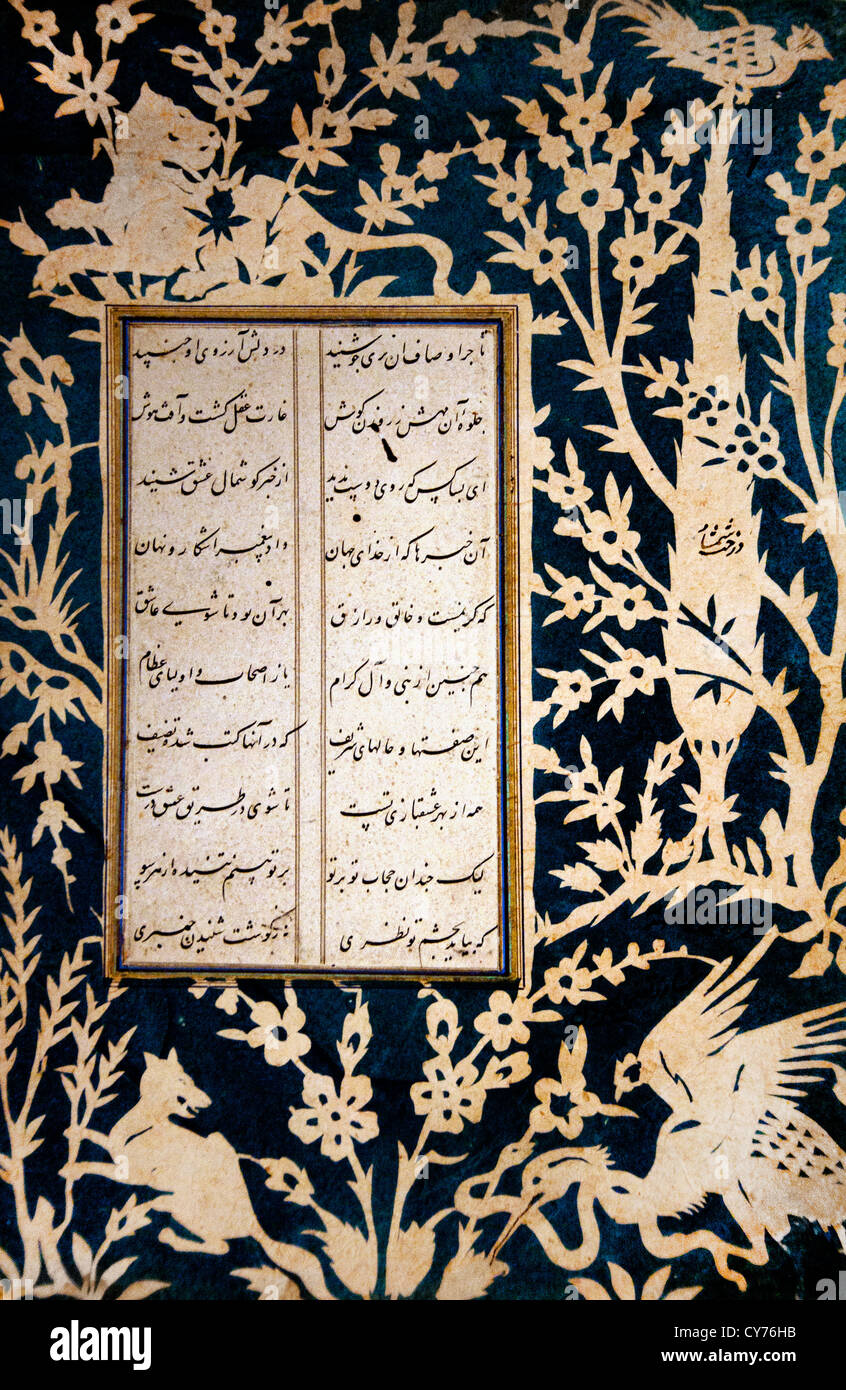 اوصاف آن پری چو شنید در دلش آرزوی او جنبید
جلوه آن مهش ز روزن گوش غارت عقل گشت و آفت هوش
ای بسا کس که روی دوست ندید از خبر گوشمال عشق
آن خبرها که از خدای جهان داد پیغمبر آشکار و نهان
که کریمست و خالق و رازق بهر آن بود تا شوی عاشق
هم چنین از نبی و آل کرام یا ز اصحاب و اولیای عظام
این صفتها و حالهای شریف که در آنها کتب شده تصنیف
همه از بهر عشقبازی تست تا شوی در طریق عشق درست
لیک چندان حجاب تو بر تو بر تو بینم تنیده از هر سو
که نیاید بچشم تو نظری نه ز گوشت شنیدن خبری
درخت شمشاد
alamy
alamy
Image ID: CY76HB
www.alamy.com